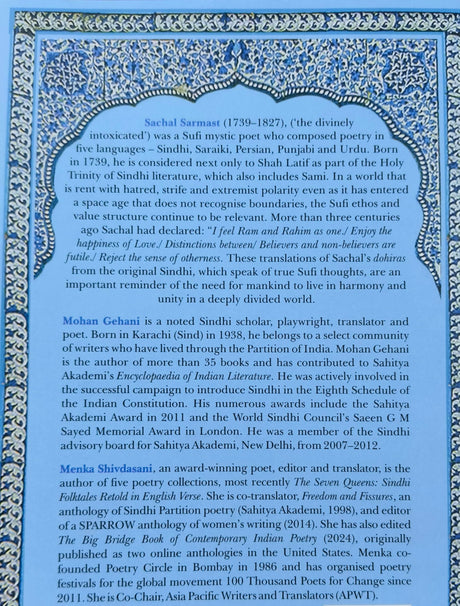 Sachal Sarmast (1739–1827), ('the divinely
intoxicated') was a Sufi mystic poet who composed poetry in
five languages – Sindhi, Saraiki, Persian, Punjabi and Urdu. Born
in 1739, he is considered next only to Shah Latif as part of the Holy
Trinity of Sindhi literature, which also includes Sami. In a world that
is rent with hatred, strife and extremist polarity even as it has entered
a space age that does not recognise boundaries, the Sufi ethos and
value structure continue to be relevant. More than three centuries
ago Sachal had declared: "I feel Ram and Rahim as one./ Enjoy the
happiness of Love./ Distinctions between/ Believers and non-believers are
futile./ Reject the sense of otherness. These translations of Sachal's dohiras
from the original Sindhi, which speak of true Sufi thoughts, are an
important reminder of the need for mankind to live in harmony and
unity in a deeply divided world.
Mohan Gehani is a noted Sindhi scholar, playwright, translator and
poet. Born in Karachi (Sind) in 1938, he belongs to a select community
of writers who have lived through the Partition of India. Mohan Gehani
is the author of more than 35 books and has contributed to Sahitya
Akademi's Encyclopaedia of Indian Literature. He was actively involved in
the successful campaign to introduce Sindhi in the Eighth Schedule of
the Indian Constitution. His numerous awards include the Sahitya
Akademi Award in 2011 and the World Sindhi Council's Saeen G M
Sayed Memorial Award in London. He was a member of the Sindhi
advisory board for Sahitya Akademi, New Delhi, from 2007–2012.
Menka Shivdasani, an award-winning poet, editor and translator, is the
author of five poetry collections, most recently The Seven Queens: Sindhi
Folktales Retold in English Verse. She is co-translator, Freedom and Fissures, an
anthology of Sindhi Partition poetry (Sahitya Akademi, 1998), and editor
of a SPARROW anthology of women's writing (2014). She has also edited
The Big Bridge Book of Contemporary Indian Poetry (2024), originally
published as two online anthologies in the United States. Menka co-
founded Poetry Circle in Bombay in 1986 and has organised poetry
festivals for the global movement 100 Thousand Poets for Change since
2011. She is Co-Chair, Asia Pacific Writers and Translators (APWT).